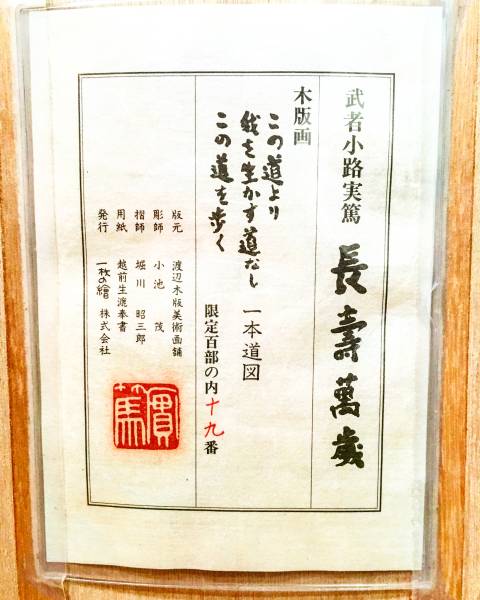 武者小路実篤　長壽萬歳
木版画
この道より
我を生かす道なし
この道を歩く
一本道図
限定百部の内十九番
版元　渡辺木版美術画舗
彫師　小池　茂
摺師　堀川　昭三郎
用紙　越前生漉奉書
発行　一枚の繪　株式会社
實篤